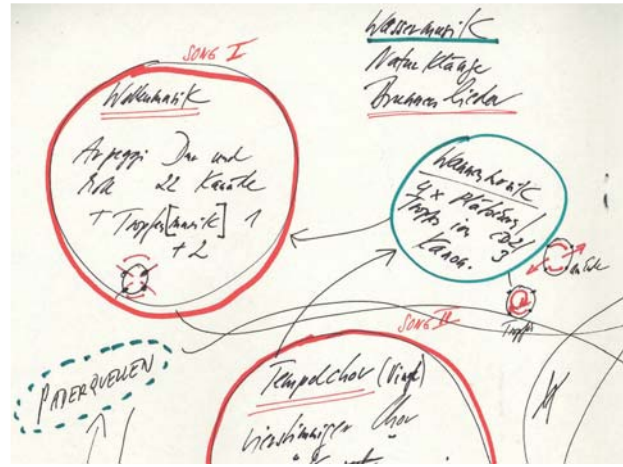 SONG I
Wassermusik
Naturklänge
Brunnenlieder
Wellenmusik
Arpeggi Dur und
Moll 22 Kanäle
+ Tropfen[musik] 1
+ 2
Wannenmusik
4x
Tropfen im CD2/
Kanon. 3
am Ende
Tropfen
SONG II
PADERQUELLEN
Tempelchor (Vinyl)
vierstimmiger Chor